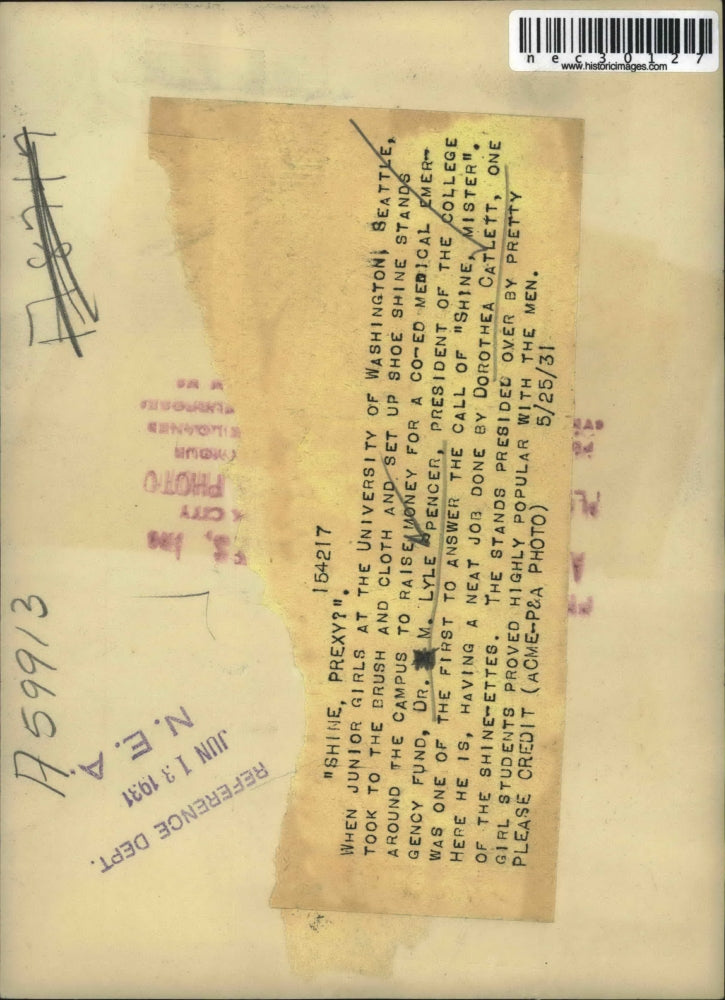 nec30127
www.historicimages.com
78719
A59913
REFERENCE DEPT.
JUN 13 1931
N. E. A.
PHOTO
K CITY
154217
"SHINE, PREXY?".
WHEN JUNIOR GIRLS AT THE UNIVERSITY OF WASHINGTON, SEATTLE,
TOOK TO THE BRUSH AND CLOTH AND SET UP SHOE SHINE STANDS
AROUND THE CAMPUS TO RAISE MONEY FOR A CO-ED MEDICAL EMER-
GENCY FUND, DR. M. LYLE SPENCER, PRESIDENT OF THE COLLEGE
WAS ONE OF THE FIRST TO ANSWER THE CALL OF "SHINE, MISTER".
HERE HE IS, HAVING A NEAT JOB DONE BY DOROTHEA CATLETT, ONE
OF THE SHINE-ETTES. THE STANDS PRESIDED OVER BY PRETTY
GIRL STUDENTS PROVED HIGHLY POPULAR WITH THE MEN.
PLEASE CREDIT (ACME-P&A PHOTO) 5/25/31